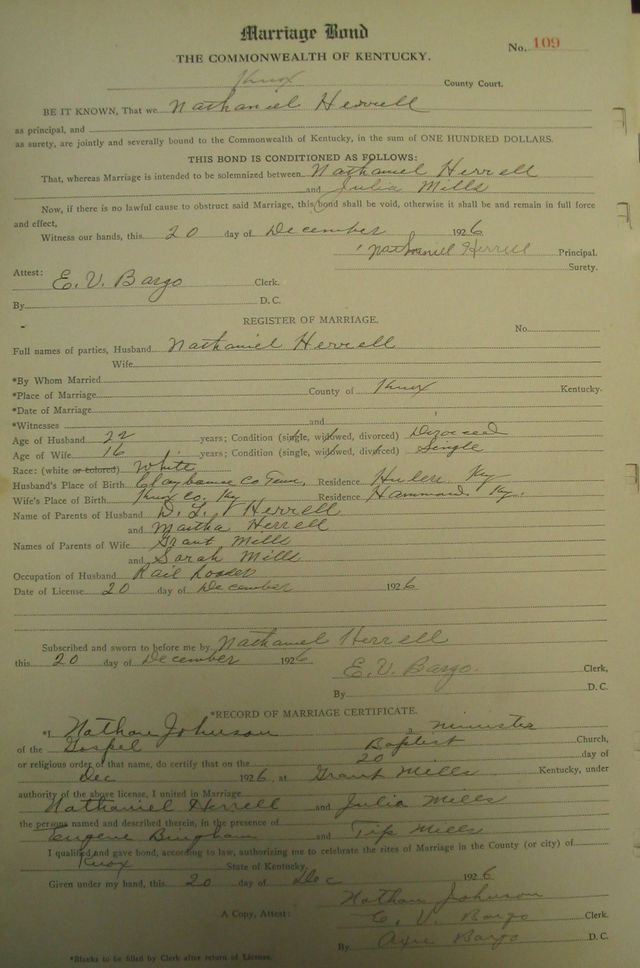 Marriage Bond
No. 109
THE COMMONWEALTH OF KENTUCKY.
Knox County Court.
BE IT KNOWN, That we Nathaniel Herrell
as principal, and
as surety, are jointly and severally bound to the Commonwealth of Kentucky, in the sum of ONE HUNDRED DOLLARS.
THIS BOND IS CONDITIONED AS FOLLOWS:
That, whereas Marriage is intended to be solemnized between Nathaniel Herrell
and Julia Mills
Now, if there is no lawful cause to obstruct said Marriage, this bond shall be void, otherwise it shall be and remain in full force
and effect,
Witness our hands, this 20 day of December 1926
Nathaniell Herrell Principal.
Surety.
Attest:
E. V. Bargo Clerk.
By D. C.
REGISTER OF MARRIAGE.
No.
Full names of parties, Husband Nathaniel Herrell
Wife
*By Whom Married
*Place of Marriage County of Knox Kentucky.
*Date of Marriage
*Witnesses and
Age of Husband 22 years; Condition (single, widowed, divorced) Divorced
Age of Wife 16 years; Condition (single, widowed, divorced) Single
Race: (white or colored) White
Husband's Place of Birth Claybourne Co Tenn, Residence Hulen Ky
Wife's Place of Birth Knox Co. Ky Residence Hammond Ky.
Name of Parents of Husband D. L. Herrell
and Martha Herrell
Names of Parents of Wife Grant Mills
and Sarah Mills
Occupation of Husband Rail Loader
Date of License 20 day of December 1926
Subscribed and sworn to before me by Nathaniel Herrell
this 20 day of December 1926
E. V. Bargo. Clerk,
By D. C.
*RECORD OF MARRIAGE CERTIFICATE.
*I, Nathan Johnson a minister
of the Gospel Baptist Church,
or religious order of that name, do certify that on the 20 day of
Dec 1926, at Grant Mills Kentucky, under
authority of the above license, I united in Marriage
Nathaniel Herrell and Julia Mills
the persons named and described therein, in the presence of
Eugene Bingham and Tip Mills
I qualified and gave bond, according to law, authorizing me to celebrate the rites of Marriage in the County (or city) of
Knox State of Kentucky.
Given under my hand, this 20 day of Dec 1926
Nathan Johnson
A Copy, Attest: E. V. Bargo Clerk.
By Bargo D. C.
*Blanks to be filled by Clerk after return of License.